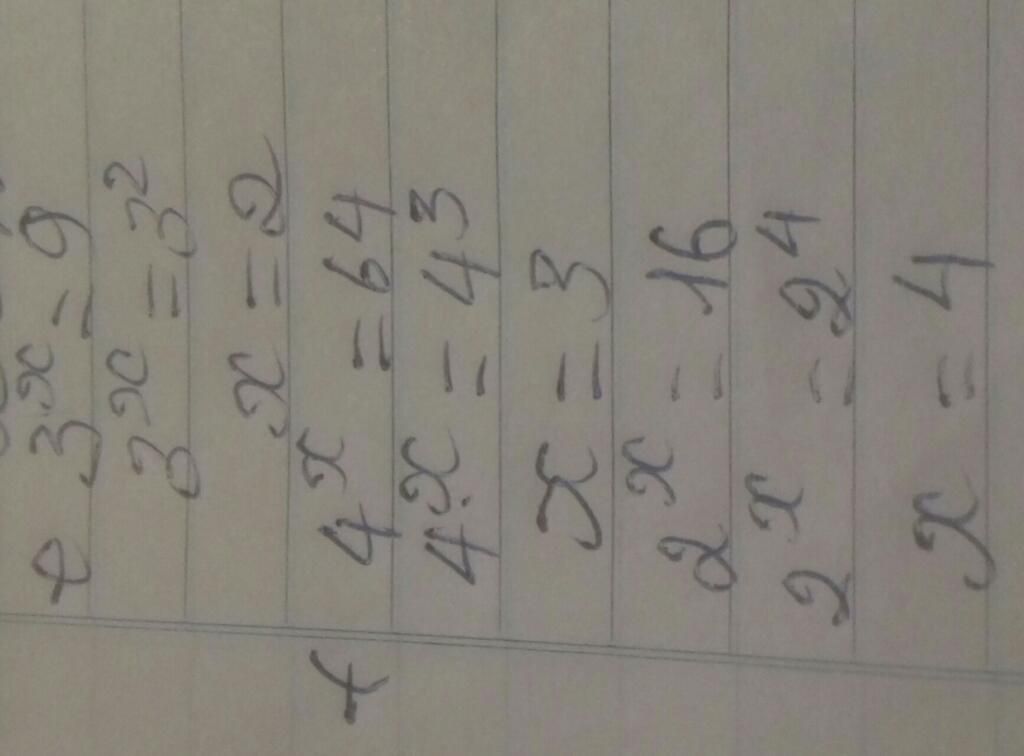 + 3^x = 9
3^x = 3^2
x = 2
+ 4^x = 64
4^x = 4^3
x = 3
2^x = 16
2^x = 2^4
x = 4